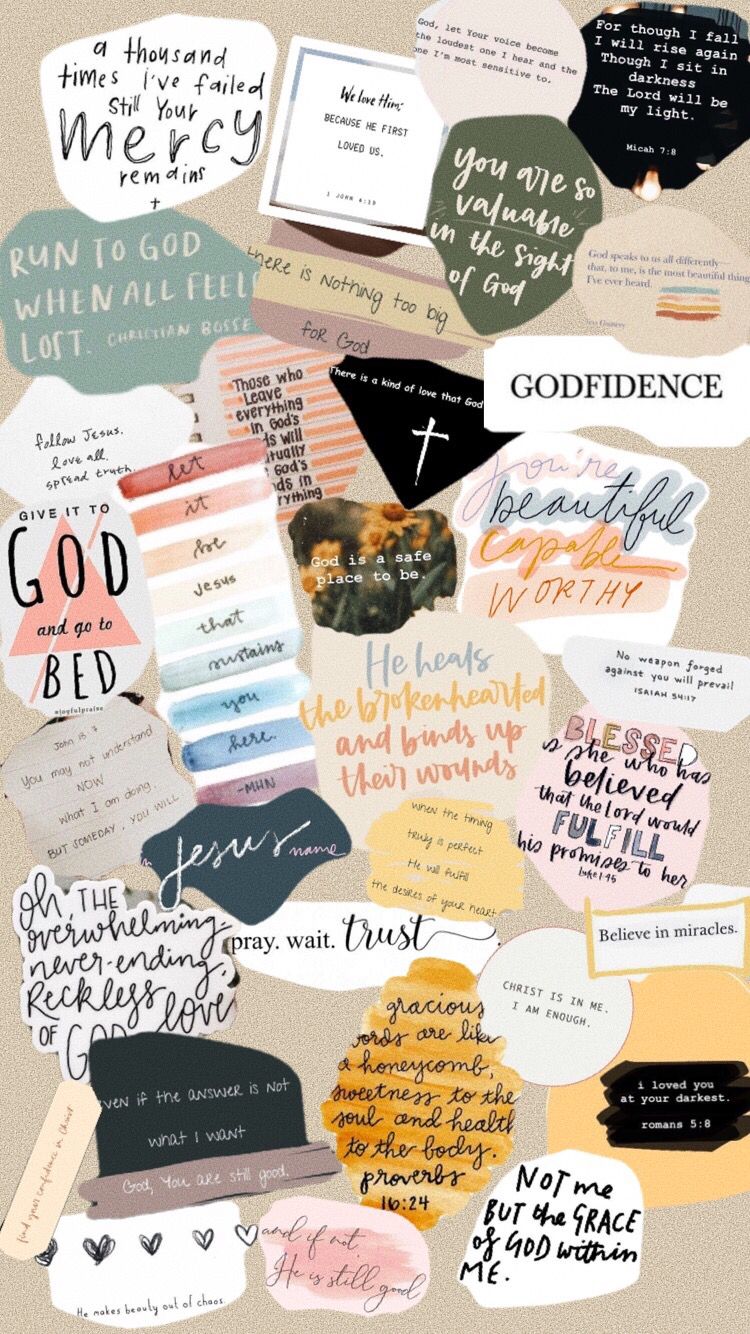 a thousand
times i've failed
still Your
mercy
remains
We love Him;
BECAUSE HE FIRST
LOVED US.
1 JOHN 4:19
God, let Your voice become
the loudest one I hear and the
one I'm most sensitive to.
For though I fall
I will rise again
Though I sit in
darkness
The Lord will be
my light.
Micah 7:8
you are so
valuable
in the sight
of God
RUN TO GOD
WHEN ALL FEELS
LOST. CHRISTIAN BOSSE
there is nothing too big
for God
God speaks to us all differently—
that, to me, is the most beautiful thing
I've ever heard.
GODFIDENCE
Those who
Leave
everything
in God's
will
God's
in
There is a kind of love that God
follow Jesus.
love all.
spread truth.
you're
beautiful
capable
WORTHY
GIVE IT TO
GOD
and go to
BED
@joyfulpraise
let
it
be
Jesus
that
sustains
you
here.
-MHN
God is a safe
place to be.
He heals
the brokenhearted
and binds up
their wounds
No weapon forged
against you will prevail
ISAIAH 54:17
John 13 7
You may not understand
NOW
what I am doing.
BUT SOMEDAY, YOU WILL
BLESSED
is she who has
believed
that the Lord would
FULFILL
his promises to her
Luke 1:45
Jesus name
when the timing
truly is perfect
He will fulfill
the desires of your heart
Oh, THE
overwhelming,
never-ending,
Reckless
OF GOD love
pray. wait. trust.
Believe in miracles.
CHRIST IS IN ME.
I AM ENOUGH.
gracious
words are like
a honeycomb,
sweetness to the
soul and health
to the body.
proverbs
16:24
i loved you
at your darkest.
romans 5:8
even if the answer is not
what I want
God, You are still good.
find your confidence in Christ
NOT me
BUT the GRACE
of GOD within
ME.
He makes beauty out of chaos.
and if not,
He is still good